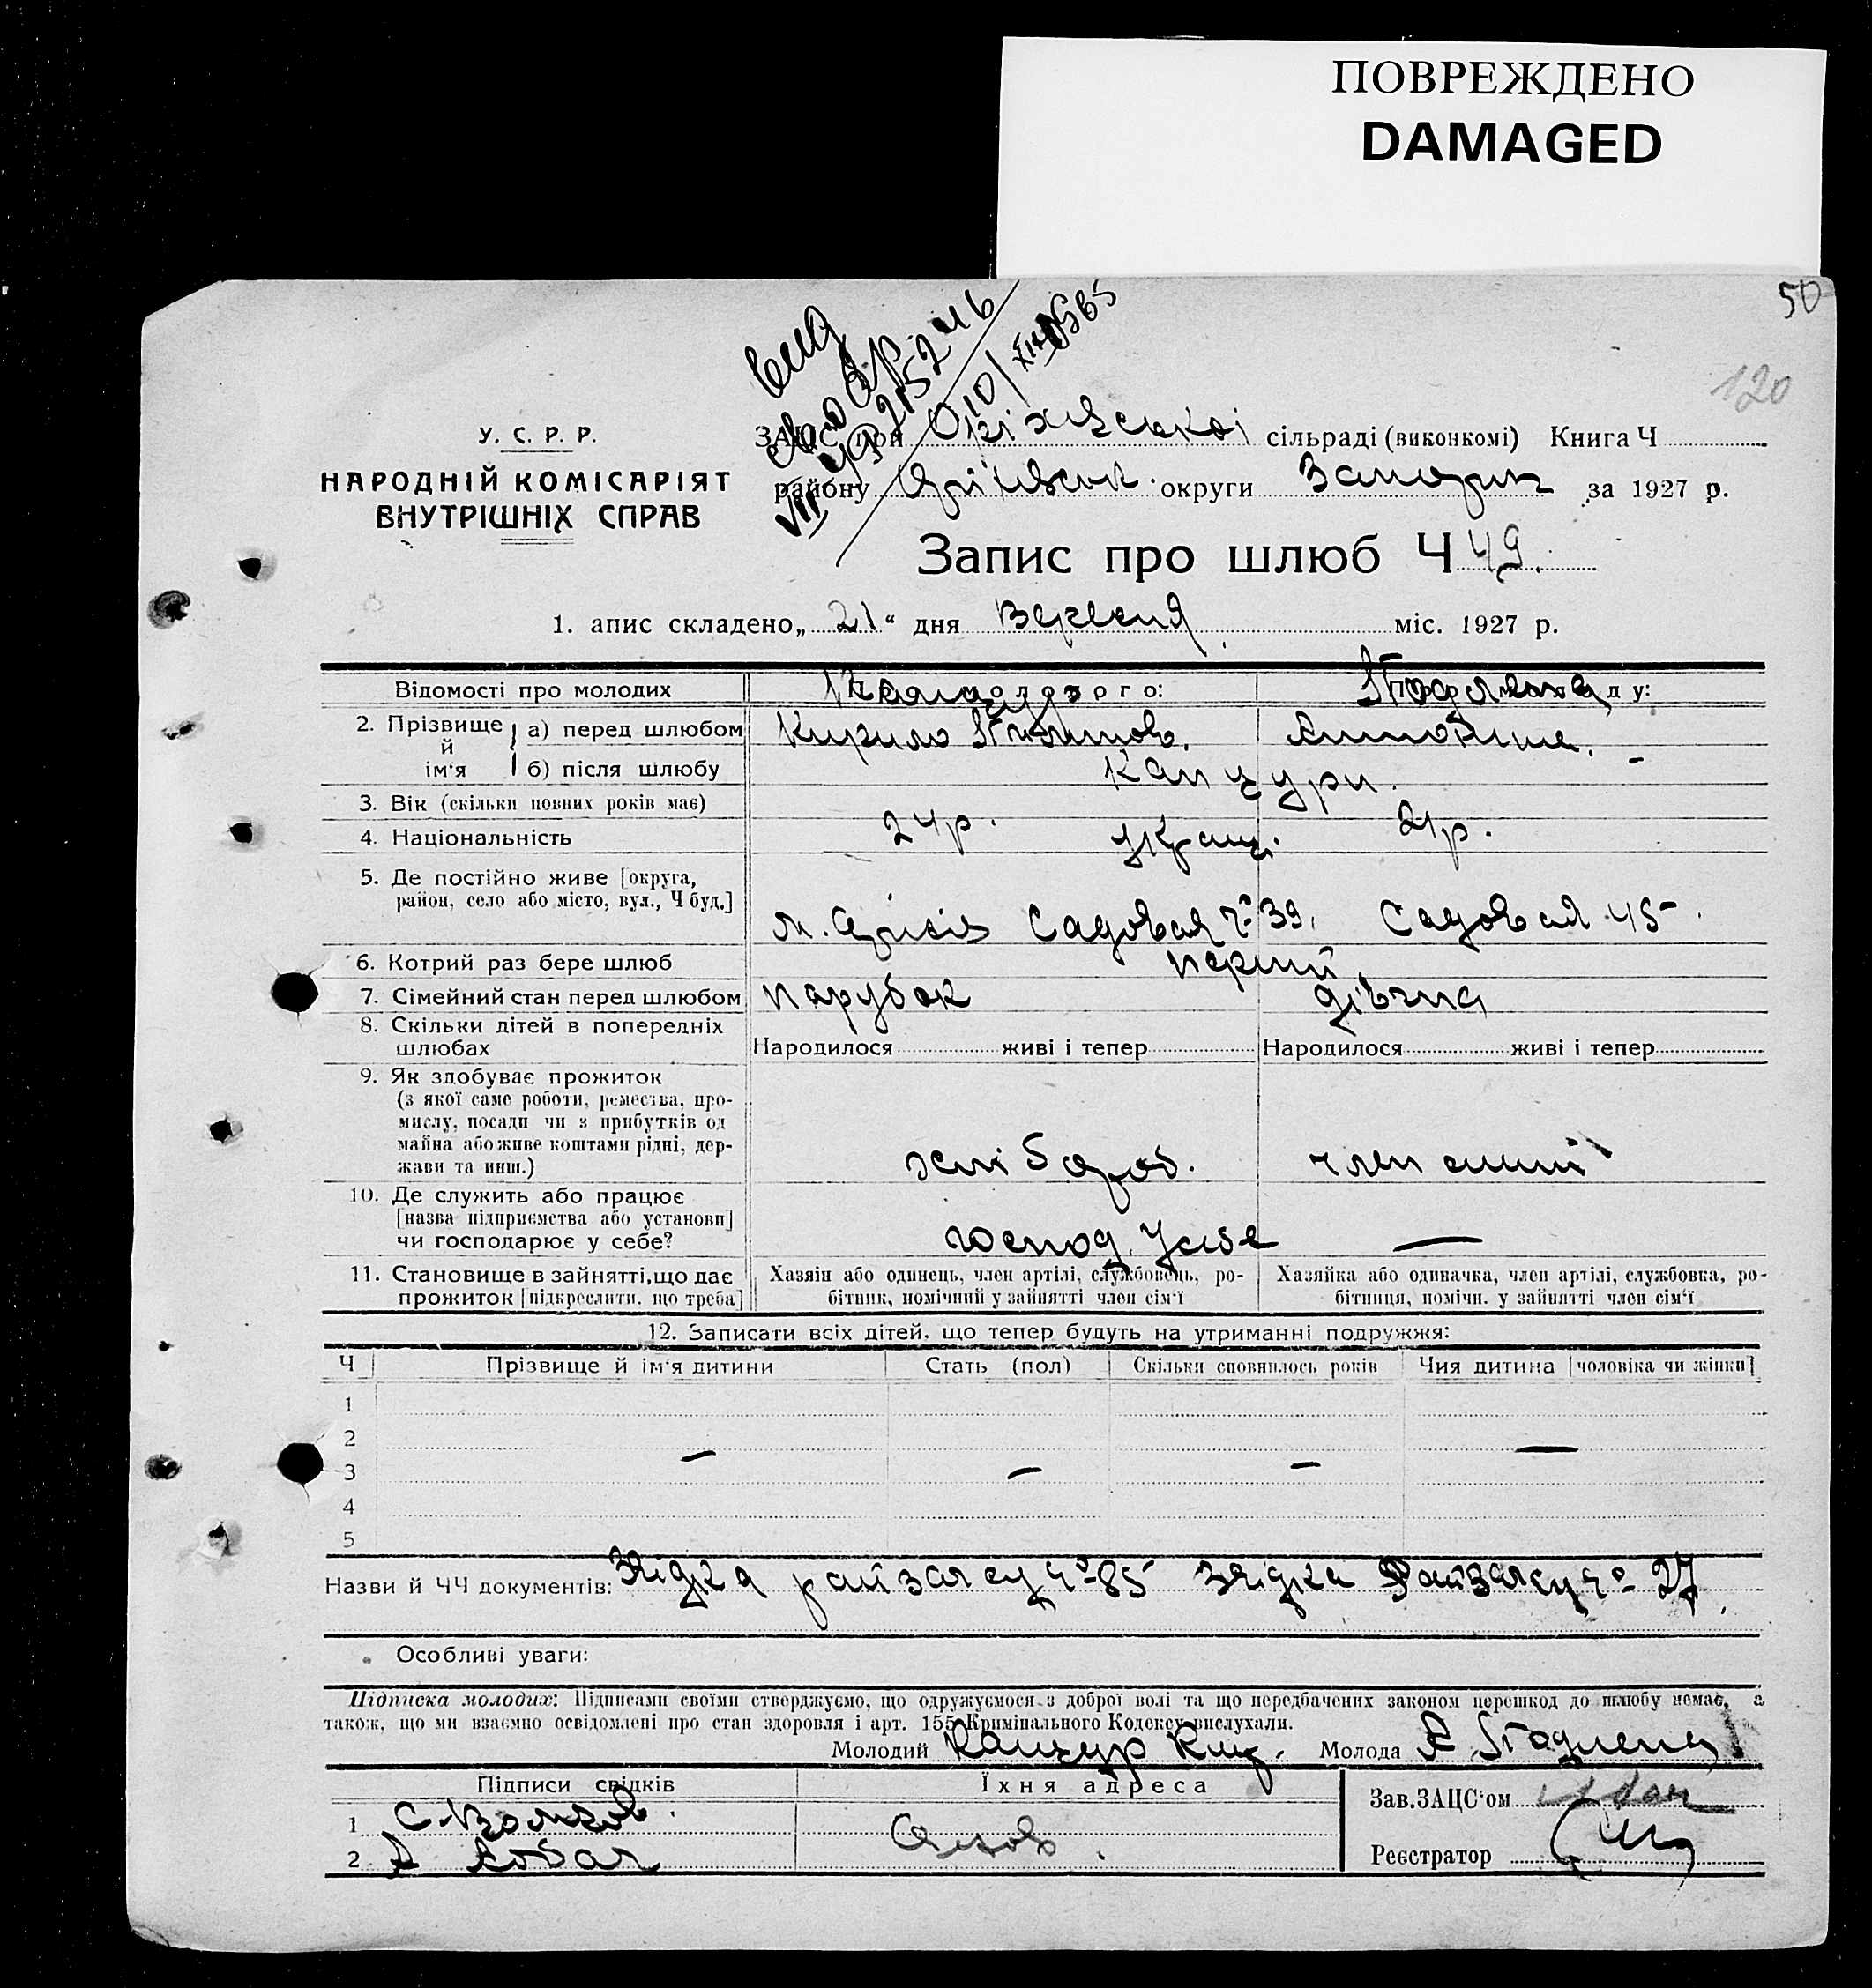 ПОВРЕЖДЕНО
DAMAGED
50
120
У. С. Р. Р.
НАРОДНІЙ КОМІСАРІЯТ
ВНУТРІШНІХ СПРАВ
ЗАЦС при Оріхівської сільраді (виконкомі) Книга Ч
району Оріхівськ. округи Запоріж за 1927 р.
Запис про шлюб Ч 49.
1. апис складено „21“ дня Вересня міс. 1927 р.
Відомості про молодих молодого: ду:
2. Прізвище й ім'я
а) перед шлюбом Кирило
б) після шлюбу Канцури.
3. Вік (скільки повних років має) 24 р. 21 р.
4. Національність Украин.
5. Де постійно живе [округа,
район, село або місто, вул., Ч буд.]
м. Оріхів Садовая Ч 39, Садовая 45.
6. Котрий раз бере шлюб перший
7. Сімейний стан перед шлюбом парубок дівчина
8. Скільки дітей в попередніх
шлюбах Народилося живі і тепер Народилося живі і тепер
9. Як здобуває прожиток
(з якої саме роботи, ремества, про-
мислу, посади чи з прибутків од
майна або живе коштами рідні, дер-
жави та инш.) хлібороб. член сімї
10. Де служить або працює
[назва підприємства або установи]
чи господарює у себе? господ. у себе —
11. Становище в зайнятті, що дає
прожиток [підкреслити, що треба]
Хазяїн або одинець, член артілі, службовець, ро-
бітник, помічний у зайнятті член сім'ї
Хазяйка або одиначка, член артілі, службовка, ро-
бітниця, помічн. у зайнятті член сім'ї
12. Записати всіх дітей, що тепер будуть на утриманні подружжя:
Ч Прізвище й ім'я дитини Стать (пол) Скільки сповнилось років Чия дитина [чоловіка чи жінки]
1
2
3
4
5
Назви й ЧЧ документів: райзагсу Ч 85 Райзагсу Ч 27
Особливі уваги:
Підписка молодих: Підписами своїми стверджуємо, що одружуємося з доброї волі та що передбачених законом перешкод до шлюбу немає, а
також, що ми взаємно освідомлені про стан здоровля і арт. 155 Кримінального Кодексу вислухали.
Молодий Канцур Кир. Молода
Підписи свідків Їхня адреса
1
2
Зав. ЗАЦС'ом
Реєстратор